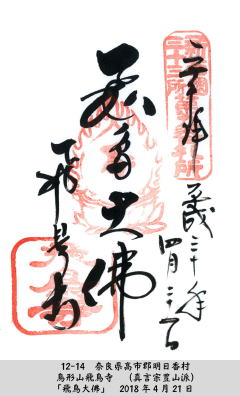 奉拝
平成三十年
四月二十一日
飛鳥大佛
飛鳥寺
12-14 奈良県高市郡明日香村
鳥形山飛鳥寺 (真言宗豊山派)
「飛鳥大佛」 2018年4月21日